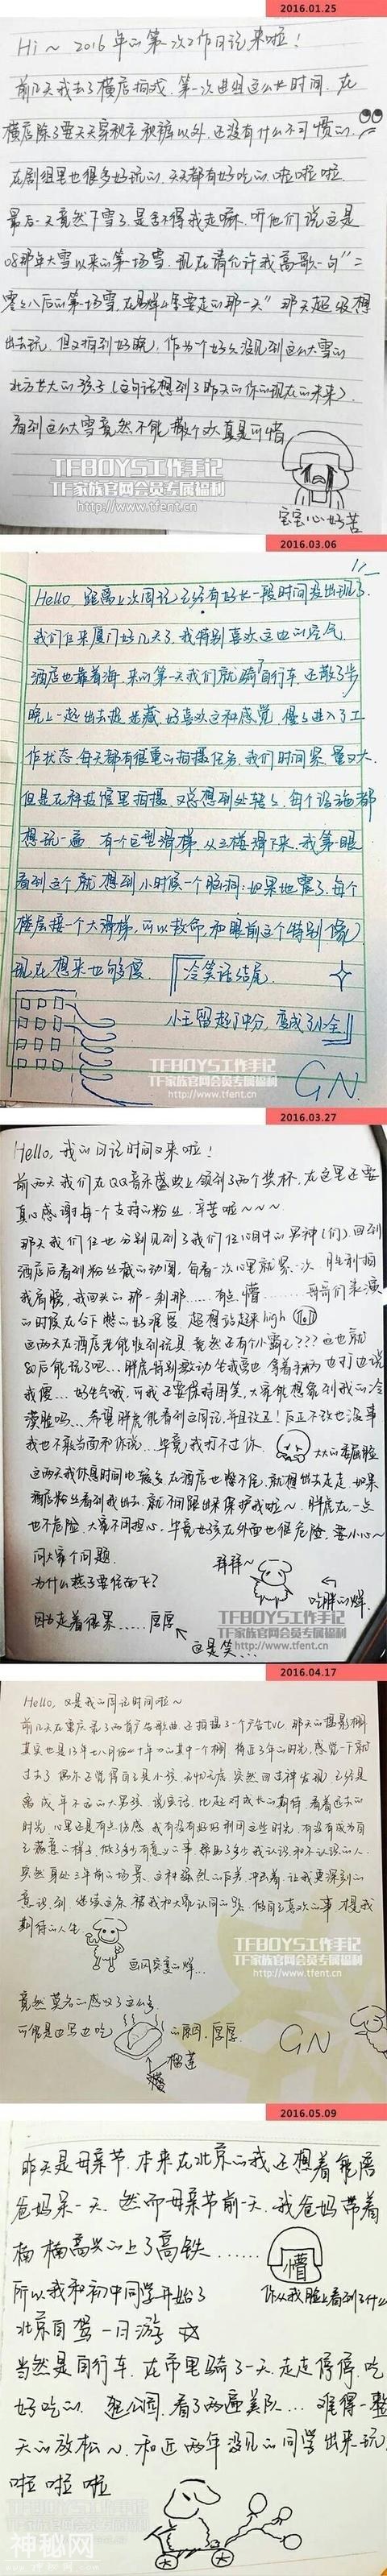 2016.01.25
Hi~ 2016年的第一次工作日记来啦!
前几天我去了横店拍戏.第一次进组这么长时间.在
横店除了要天天穿秋衣秋裤以外.还没有什么不习惯的.
在剧组里也很多好玩的.天天都有好吃的.啦啦啦
最后一天竟然下雪了.是舍不得我走嘛.听他们说这是
08那年大雪以来的第一场雪.现在请允许我高歌一句"二
零零八后的第一场雪.在易烊千玺要走的那一天"那天超级想
出去玩.但又拍到好晚.作为一个好久没见到这么大雪的
北方长大的孩子(这句话想到了昨天的你的现在的未来).
看到这么大雪竟然不能撒个欢.真是可惜
宝宝心好苦
TFBOYS工作手记
TF家族官网会员专属福利
http://www.tfent.cn
2016.03.06
Hello,距离上次周记已经有好长一段时间没出现了.
我们仨来厦门好几天了.我特别喜欢这边的空气
酒店也靠着海.来的第一天我们就骑了自行车.还散了步
晚上一起出去捉迷藏.好喜欢这种感觉.慢慢进入了工
作状态.每天都有很重的拍摄任务.我们时间紧.量又大.
但是在科技馆里拍摄.又总想到处转转.每个设施都
想玩一遍.有个巨型滑梯.从三楼滑下来.我第一眼
看到这个就想到小时候一个脑洞:如果地震了.每个
楼层接一个大滑梯.可以救命.和眼前这个特别像)
现在想来也够傻.『冷笑话结尾.
小王留起了中分.变成了小全』
GN.
TFBOYS工作手记
TF家族官网会员专属福利
http://www.tfent.cn
2016.03.27
Hello,我的周记时间又来啦!
前两天我们在QQ音乐盛典上领到了两个奖杯.在这里还要
真心感谢每一个支持的粉丝.辛苦啦~~~
那天我们仨也分别见到了我们仨心目中的男神(们).回到
酒店后看到粉丝截的动图,每看一次心里就累一次.
我肩膀,我回头的那一刹那……有点懵……哥哥们表演
的时候在台下憋的好难受.超想站起来high
这两天在酒店光能收到玩具.竟然还有个小霸王???这也就
80后能玩了吧…胖虎特别激动.坐我旁边.拿着手柄边打边说
我傻…好生气哦.可我还要保持围笑.大家能想象到我的冷
漠脸吗…希望胖虎能看到这周记.并且改正!反正不改也没事
我也不敢当面和你说…毕竟我打不过你. 大大的委屈脸
这两天我休息时间也较多.在酒店也憋不住.就想出去走走.如果
酒店粉丝看到我出去.就不用跟出来保护我啦~胖虎在一点
也不危险.大家不用担心.毕竟女孩在外面也很危险.要小心~
问大家个问题. 拜拜~
为什么燕子要往南飞?
因为走着很累……厚厚
这是笑…
吃胖的烊
TFBOYS工作手记
TF家族官网会员专属福利
http://www.tfent.cn
2016.04.17
Hello,又是我的周记时间啦~
前几天在重庆录了两首广告歌曲.还拍摄了一个广告tvc.那天的摄影棚
其实也是13年七八月份《十年》的其中一个棚.将近3年的时光.感觉一下就
过去了.偶尔还觉得自己是小孩.无忧无虑.突然回过神发现.已经是
离成年不远的大男孩.说实话.比起对成长的期待.看着远去的
时光.心里还是有点伤感.我有没有好好利用这些时光.有没有成为自
己满意的样子.做了多少有意义的事.帮助了多少我认识和不认识的人.
突然身处3年前的场景.这种强烈的反差冲击着.让我更深刻的
意识到.继续这条被我和大家认同的路.做自己喜欢的事.提我
期待的人生.
画风突变的烊…
竟然莫名的感叹了这么多
可能是边写边吃 的原因.厚厚.
榴莲
GN
TFBOYS工作手记
TF家族官网会员专属福利
http://www.tfent.cn
2016.05.09
昨天是母亲节.本来在北京的我还想着能陪
爸妈呆一天.然而母亲节前一天.我爸妈带着
楠楠高兴的上了高铁……
懵
所以我和初中同学开始了 你从我脸上看到了什么
北京自驾一日游 ☆
当然是自行车.在市里骑了一天.走走停停.吃
好吃的.逛公园.看了两遍美队…难得一整
天的放松~.和近两年没见的同学出来玩.
啦啦啦
神秘网